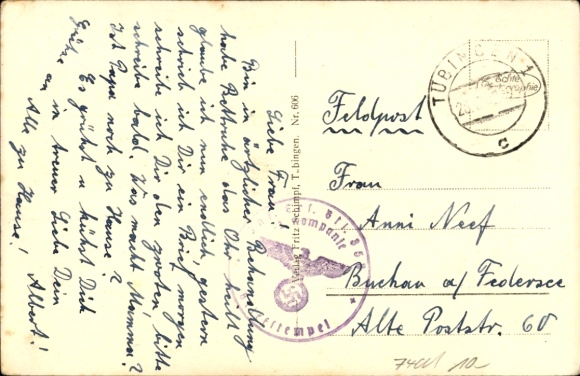 Liebe Frau!
Bin in ärztlicher Behandlung
habe Bettruhe das Ohr heilt
glaube ich nun endlich, gestern
schrieb ich Dir ein Brief, morgen
schreibe ich Dir den zweiten, bitte
schreibe bald. Was macht Mamma?
Ist Papa noch zu Hause?
Es grüßt u küßt Dich
in treuer Liebe Dein
Albert!
Grüße an Alle zu Hause!
Verlag Fritz Schimpf, Tübingen. Nr. 606
TÜBINGEN 1
c
Echte
Feldpost
Frau
Anni Neef
Buchau a/ Federsee
Alte Poststr. 60
Kompanie
Briefstempel
10.-